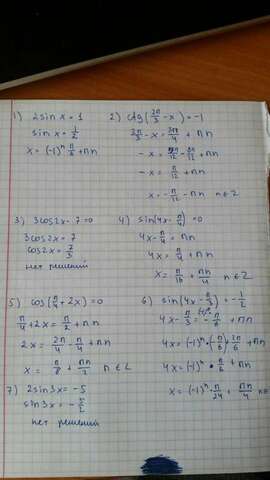 1) 2sin x = 1
sin x = 1/2
x = (-1)ⁿ π/6 + πn
2) ctg(2π/3 - x) = -1
2π/3 - x = 3π/4 + πn
-x = 9π/12 - 8π/12 + πn
-x = π/12 + πn
x = -π/12 - πn n ∈ Z
3) 3cos2x - 7 = 0
3cos2x = 7
cos2x = 7/3
нет решений
4) sin(4x - π/4) = 0
4x - π/4 = πn
4x = π/4 + πn
x = π/16 + πn/4 n ∈ Z
5) cos(π/4 + 2x) = 0
π/4 + 2x = π/2 + πn
2x = 2π/4 - π/4 + πn
x = π/8 + πn/2 n ∈ Z
6) sin(4x - π/3) = -1/2
4x - π/3 = - π/6 + πn
4x = (-1)ⁿ · (π/6) + 2π/6 + πn
4x = (-1)ⁿ · π/6 + πn
x = (-1)ⁿ · π/24 + πn/4
7) 2sin3x = -5
sin3x = -5/2
нет решений